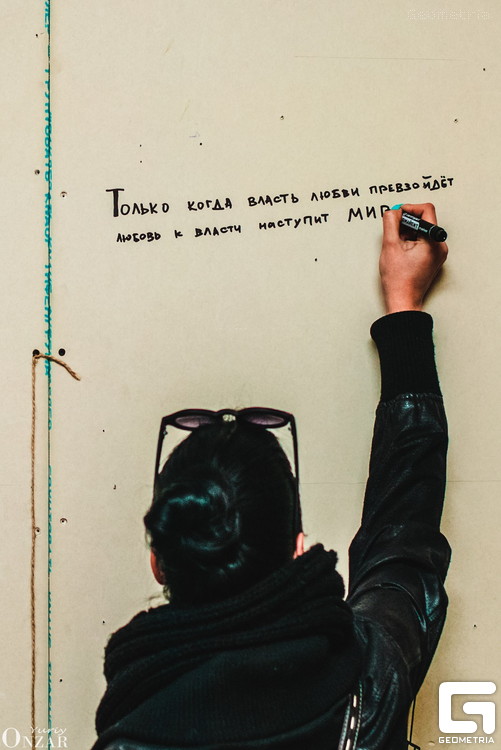 Geometria
Только когда власть любви превзойдёт
любовь к власти наступит МИР
GEOMETRIA
Yuriy
ONZAR